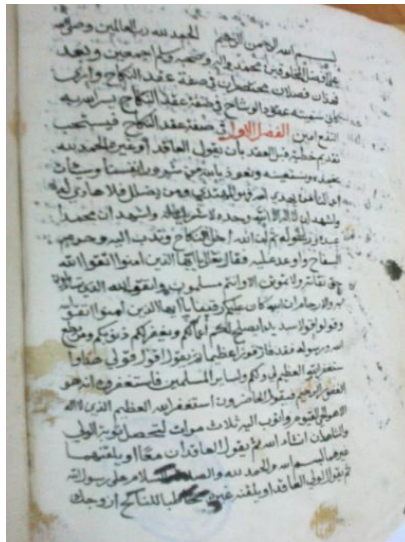 بسم الله الرحمن الرحيم الحمد لله رب العالمين
محمد واله وصحبه وسلم اجمعين وبعد
فهذان فصلان مختصران في صفة عقد النكاح
في صفة عقد النكاح
النفع امين الفصل الاول في صفة عقد النكاح فيستحب
تقديم خطبة قبل العقد بان يقول العاقد او غيره الحمد لله
نحمده ونستعينه ونعوذ بالله من شرور انفسنا وسيئات
اعمالنا من يهدي الله فهو المهتدي ومن يضلل فلا هادي له
واشهد ان لا اله الا الله وحده لا شريك له واشهد ان محمدا
عبده ورسوله الله احل النكاح وندب اليه وحرم
السفاح واوعد عليه فقال تعالى يا ايها الذين امنوا اتقوا الله
حق تقاته ولا تموتن الا وانتم مسلمون واتقوا الله الذي
والارحام ان الله كان عليكم رقيبا يا ايها الذين امنوا اتقوا
وقولوا قولا سديدا يصلح لكم اعمالكم ويغفر لكم ذنوبكم ومن يطع
الله ورسوله فقد فاز فوزا عظيما ثم يقول اقول قولي هذا و
ستغفر الله العظيم لي ولكم ولساير المسلمين فاستغفروه انه هو
الغفور الرحيم فيقول الحاضرون استغفر الله العظيم الذي لا اله
الا هو الحي القيوم واتوب اليه ثلاث مرات لتحصل توبة الولي
والشاهدان ان شاء الله ثم يقول العاقدان معا او يلقنهما
غيرهما بسم الله والحمد لله والصلاة والسلام على رسول الله
ثم يقول الولي العاقد او يلقنه غيره للناكح ازوجك